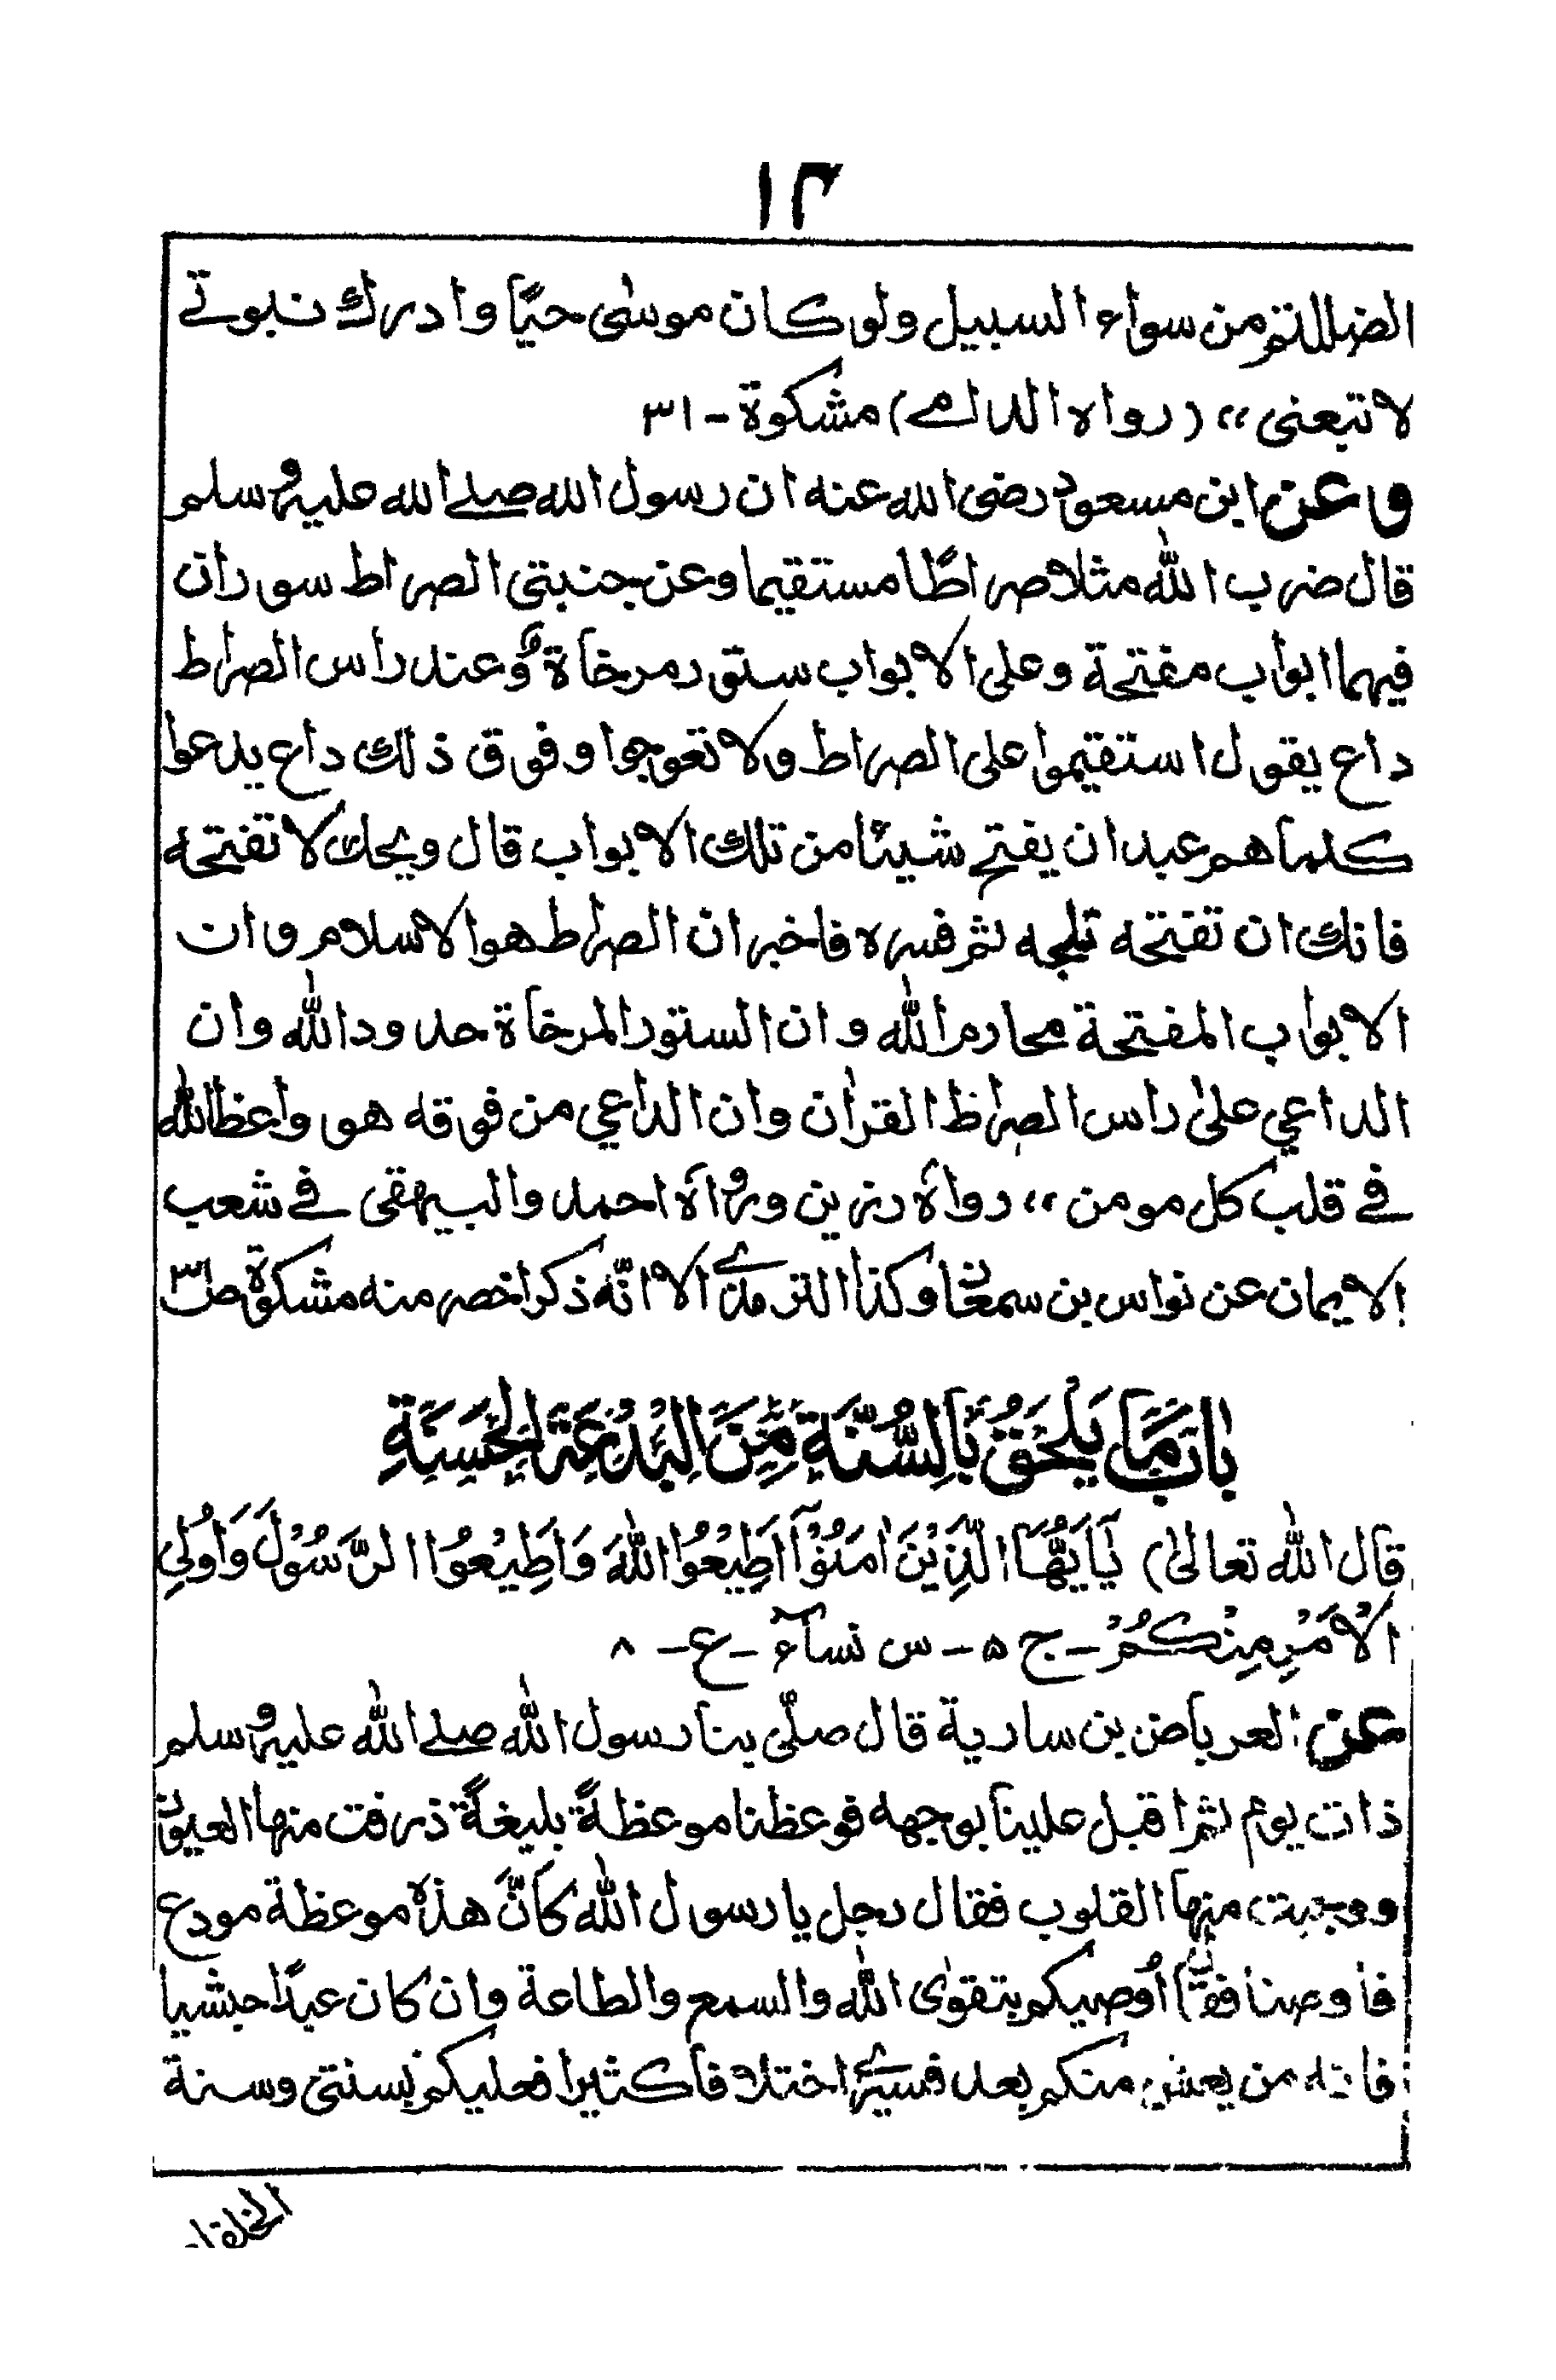 ١٢
الضللتم من سواء السبيل ولو كان موسٰى حيًّا وادرك نبوتے
لا تتبعنى ،، (رواه الدارمے) مشكوة - ٣١
وعن ابن مسعود رضى الله عنه ان رسول الله صلے الله عليه وسلم
قال ضرب اللّٰه مثلا صراطًا مستقيما وعن جنبتى الصراط سوران
فيهما ابواب مفتحة وعلى الابواب ستور مرخاة وعند راس الصراط
داع يقول استقيموا على الصراط ولا تعوجوا وفوق ذلك داع يدعوا
كلما هم عبد ان يفتح شيئا من تلك الابواب قال ويحك لا تفتحه
فانك ان تفتحه تلجه ثم فسره فاخبر ان الصراط هو الاسلام وان
الابواب المفتحة محارم اللّٰه وان الستور المرخاة حدود اللّٰه وان
الداعي علىٰ راس الصراط القراٰن وان الداعي من فوقه هو واعظ اللّٰه
فے قلب كل مومن ،، رواه رزين ورواه احمد والبيهقى فے شعب
الايمان عن نواس بن سمعان وكذا الترمذے الا انّه ذكر اخصر منه مشكوة ص ٣١
بَابُ مَا يَلْحَقُ بِالسُّنَّةِ مِنَ الْبِدْعَةِ الْحَسَنَةِ
قال اللّٰه تعالىٰ) يَاَيُّهَا الَّذِيْنَ اٰمَنُوْٓا اَطِيْعُوا اللّٰهَ وَاَطِيْعُوا الرَّسُوْلَ وَاُولِي
الْاَمْرِ مِنْكُمْ - ج ۵ - س نسآء - ع - ٨
عن العرباض بن سارية قال صلّى بنا رسول اللّٰه صلے اللّٰه عليه وسلم
ذات يوم ثم اقبل علينا بوجهه فوعظنا موعظةً بليغةً ذرفت منها العيون
ووجبت منها القلوب فقال رجل يا رسول اللّٰه كاَنَّ هذه موعظة مودع
فاوصنا فقال اُوصيكم بتقوٰى اللّٰه والسمع والطاعة وان كان عبدًا حبشيا
فانه من يعش منكم بعد فسيرے اختلافا كثيرا فعليكم بسنتى وسنة
الخلفاء